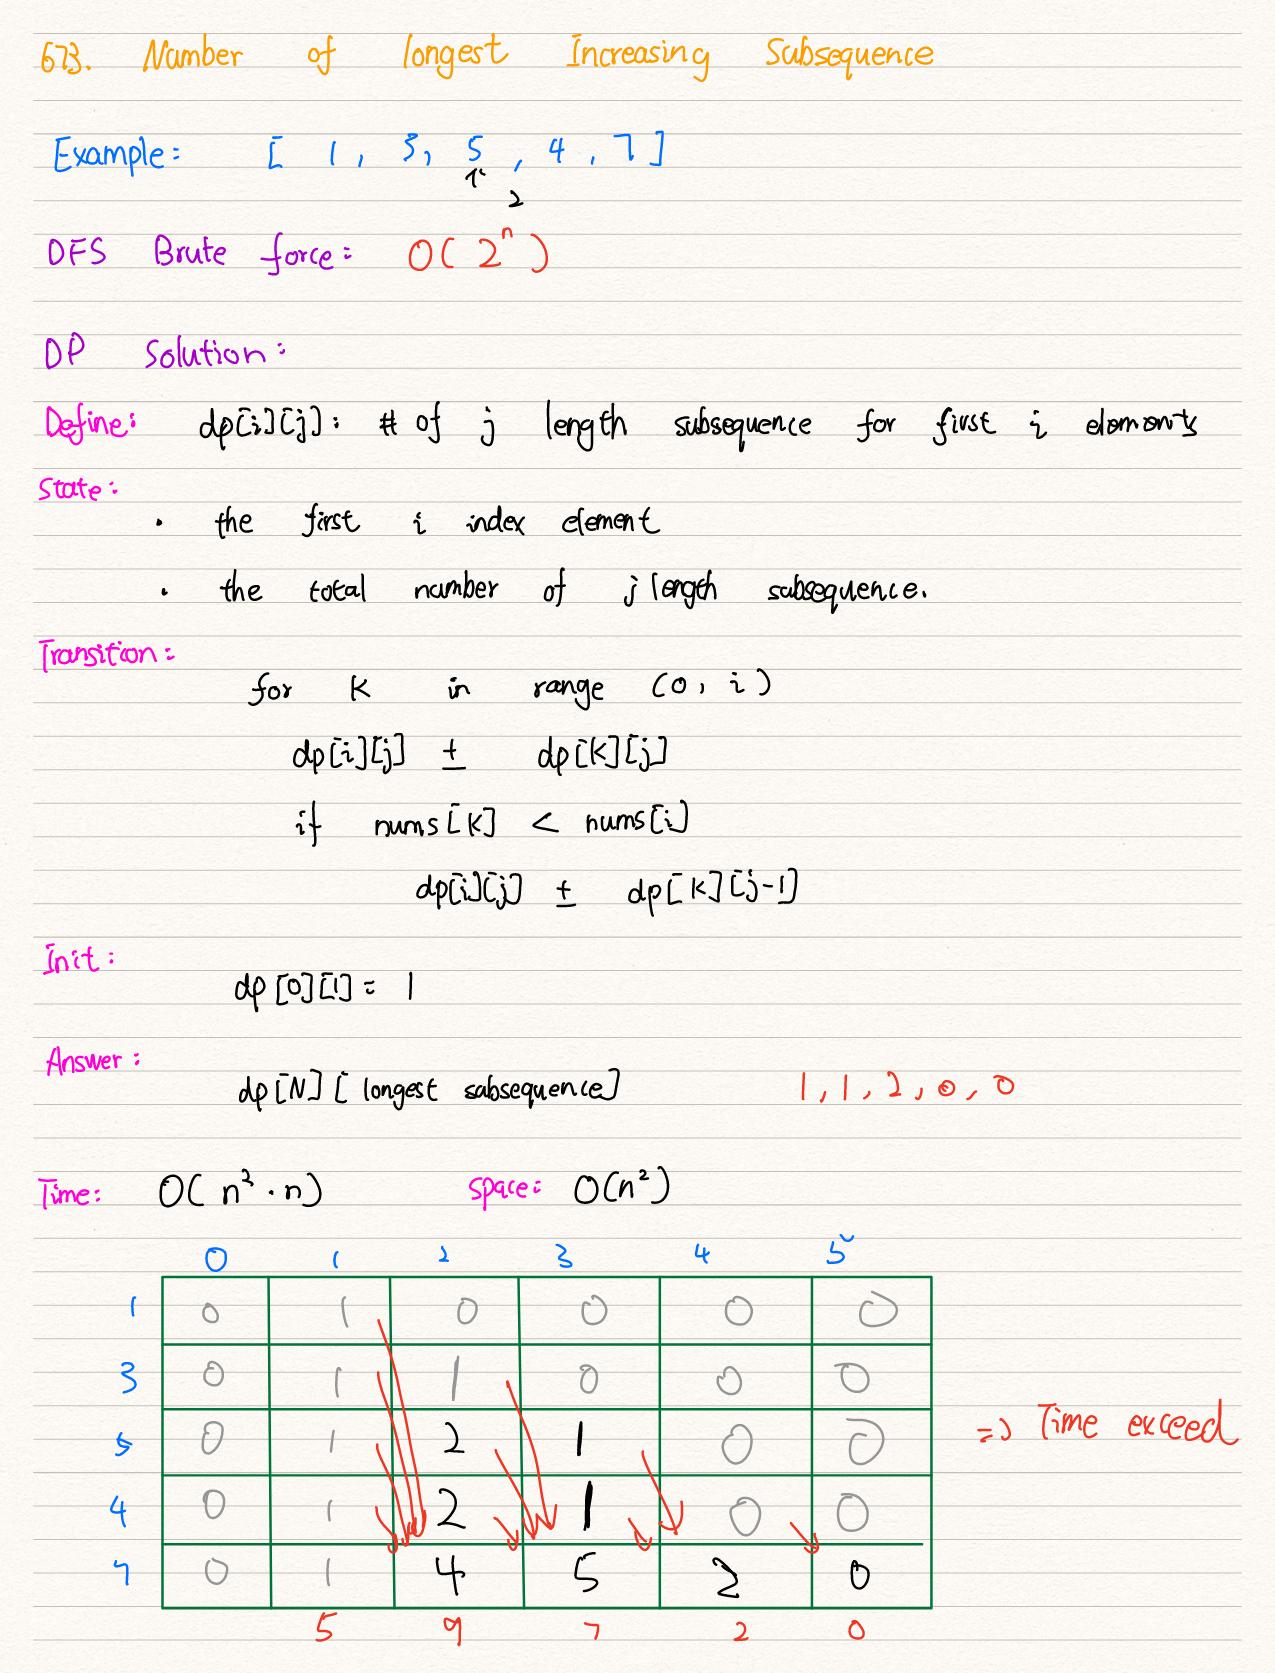 673. Number of longest Increasing Subsequence
Example: [ 1, 3, 5, 4, 7 ]
1 2
DFS Brute force: O( 2^n )
DP Solution:
Define: dp[i][j]: # of j length subsequence for first i elements
State:
· the first i index element
· the total number of j length subsequence.
Transition:
for k in range (0, i)
dp[i][j] ± dp[k][j]
if nums[k] < nums[i]
dp[i][j] ± dp[k][j-1]
Init:
dp[0][1] = 1
Answer:
dp[N][ longest subsequence] 1, 1, 2, 0, 0
Time: O( n²·n) space: O(n²)
0 1 2 3 4 5
1 0 1 0 0 0 0
3 0 1 1 0 0 0
5 0 1 2 1 0 0
4 0 1 2 1 0 0
7 0 1 4 5 2 0
5 9 7 2 0
=> Time exceed